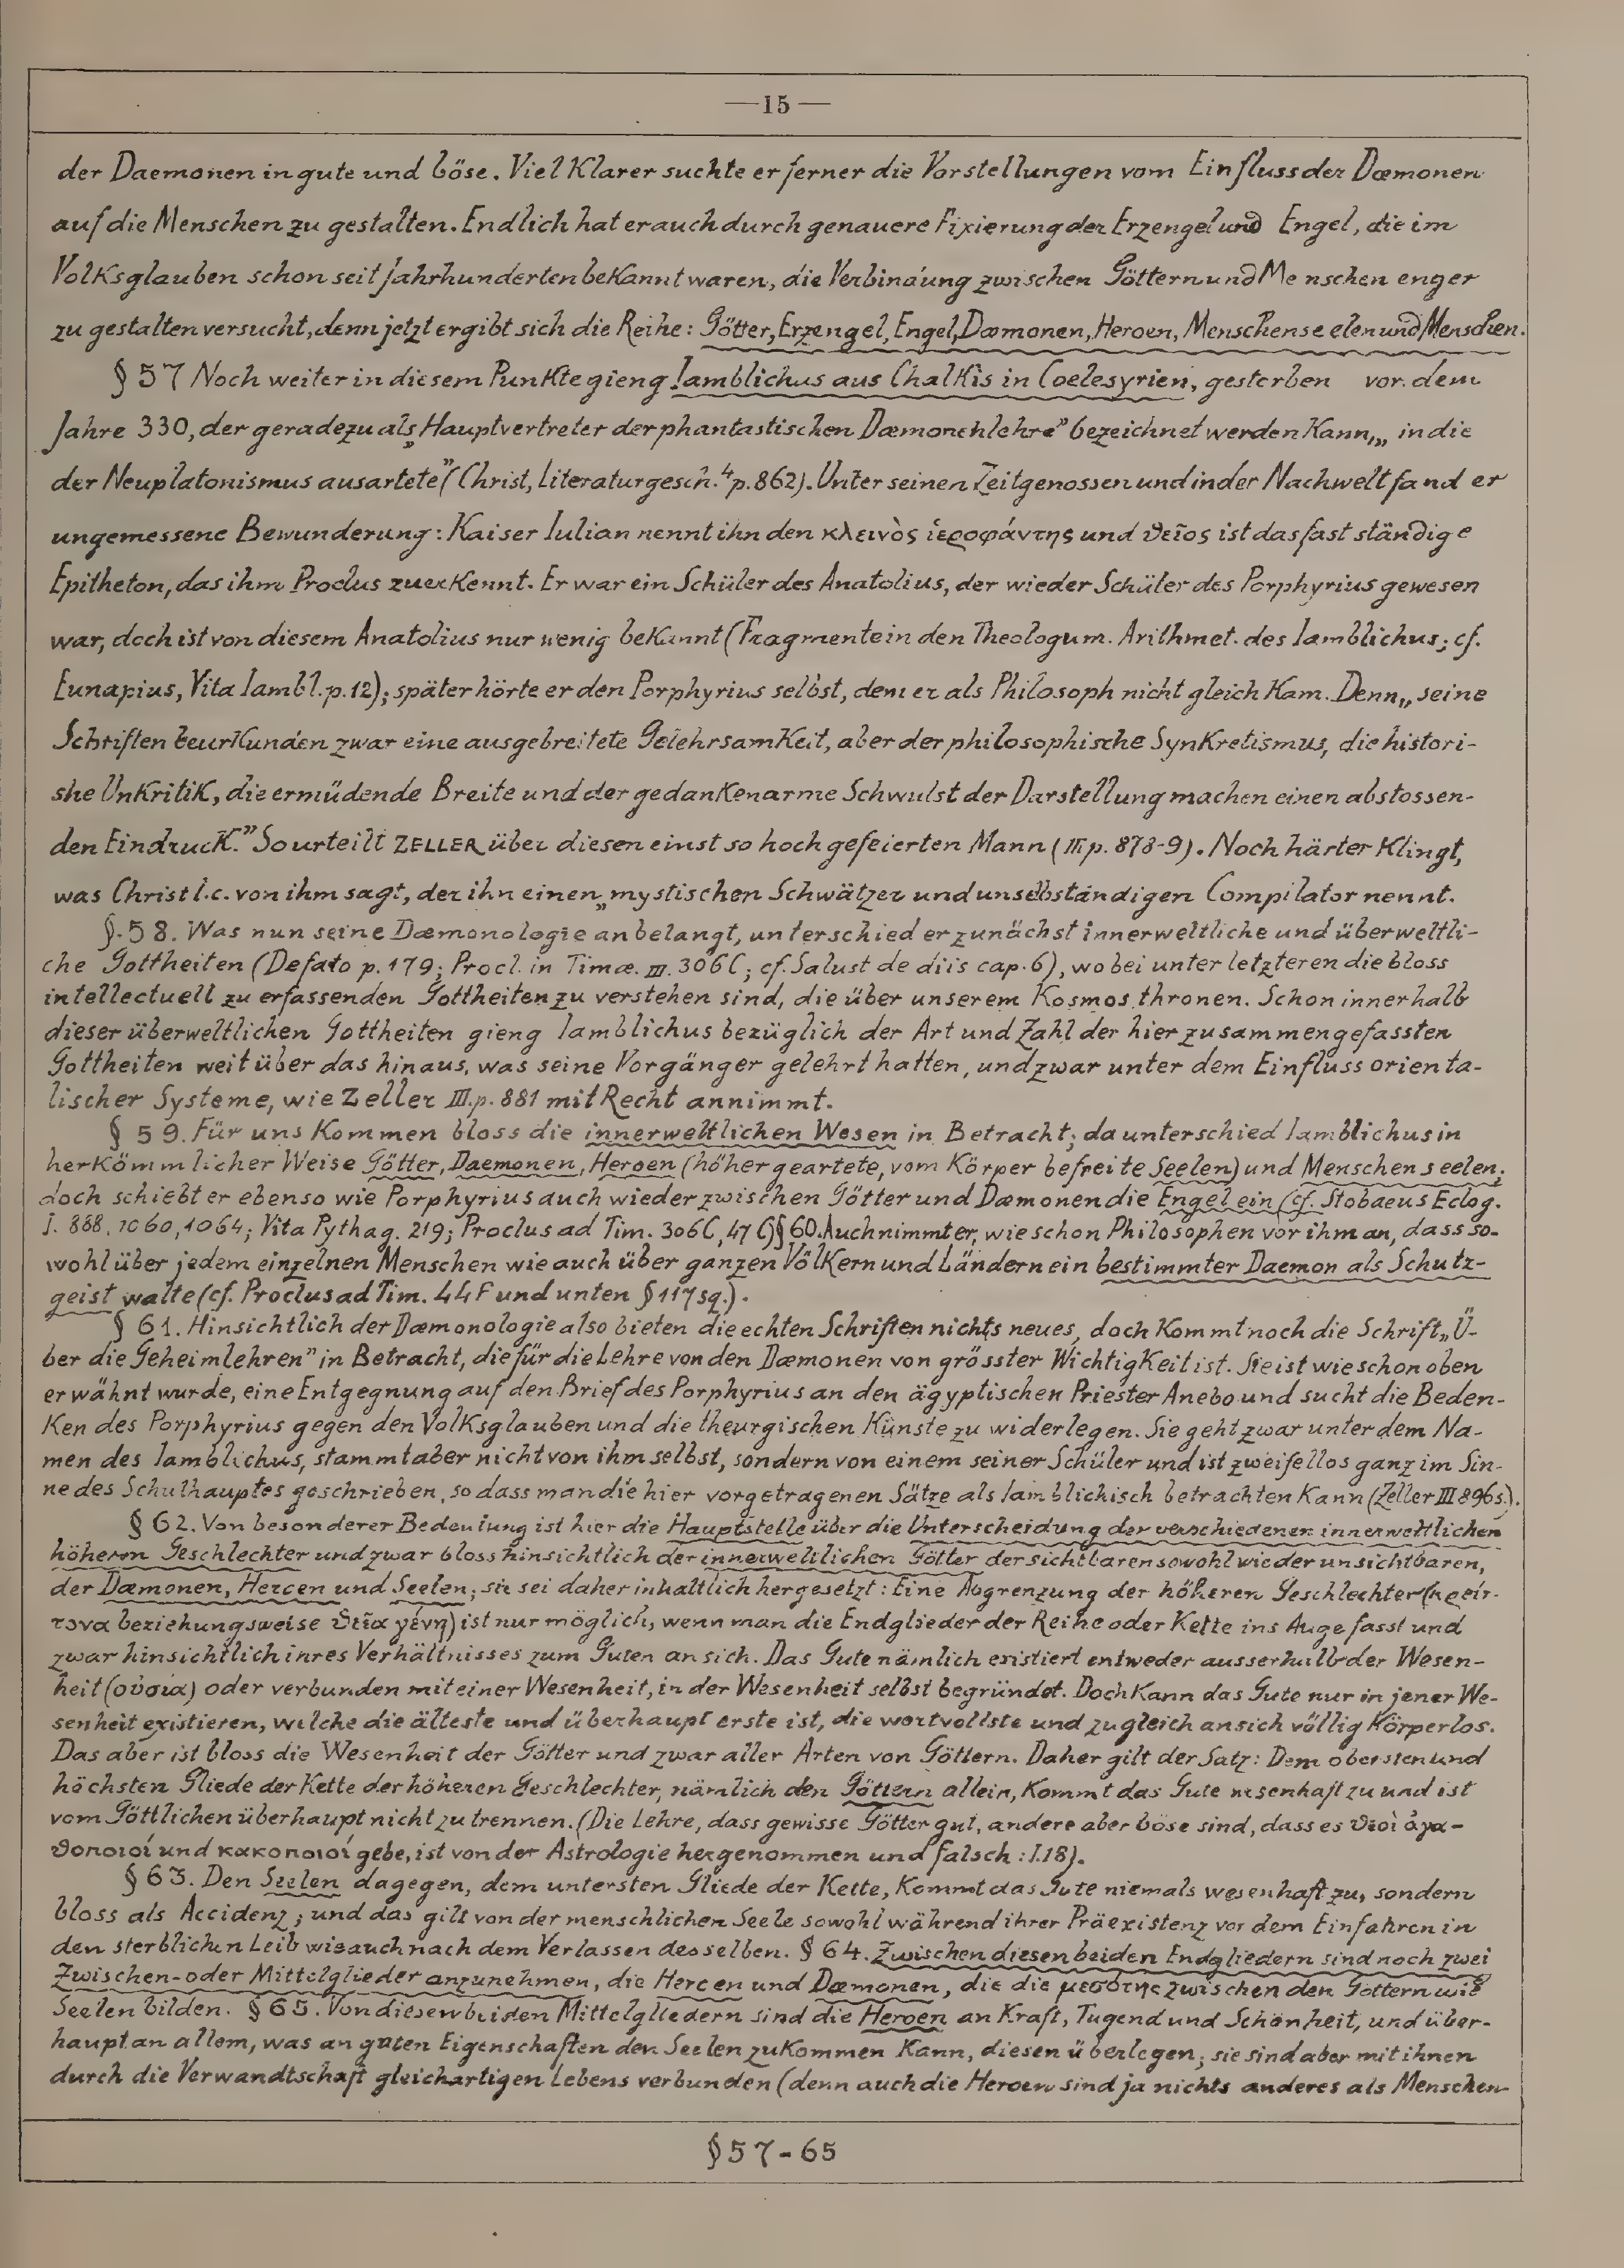 —15—
der Daemonen in gute und böse. Viel klarer suchte er ferner die Vorstellungen vom Einfluss der Dæmonen
auf die Menschen zu gestalten. Endlich hat er auch durch genauere Fixierung der Erzengel und Engel, die im
Volksglauben schon seit Jahrhunderten bekannt waren, die Verbindung zwischen Göttern und Menschen enger
zu gestalten versucht, denn jetzt ergibt sich die Reihe: Götter, Erzengel, Engel, Dæmonen, Heroen, Menschenseelen und Menschen.
§ 57 Noch weiter in diesem Punkte gieng Iamblichus aus Chalkis in Coelesyrien, gestorben vor dem
Jahre 330, der geradezu als „Hauptvertreter der phantastischen Dæmonenlehre” bezeichnet werden kann, „in die
der Neuplatonismus ausartete” (Christ, Literaturgesch.⁴ p. 862). Unter seinen Zeitgenossen und in der Nachwelt fand er
ungemessene Bewunderung: Kaiser Iulian nennt ihn den κλεινὸς ἱεροφάντης und ϑεῖος ist das fast ständige
Epitheton, das ihm Proclus zuerkennt. Er war ein Schüler des Anatolius, der wieder Schüler des Porphyrius gewesen
war, doch ist von diesem Anatolius nur wenig bekannt (Fragmente in den Theologum. Arithmet. des Iamblichus; cf.
Eunapius, Vita Iambl. p. 12); später hörte er den Porphyrius selbst, dem er als Philosoph nicht gleich kam. Denn „seine
Schriften beurkunden zwar eine ausgebreitete Gelehrsamkeit, aber der philosophische Synkretismus, die histori-
she Unkritik, die ermüdende Breite und der gedankenarme Schwulst der Darstellung machen einen abstossen-
den Eindruck.” So urteilt ZELLER über diesen einst so hoch gefeierten Mann (III p. 878-9). Noch härter klingt,
was Christ l.c. von ihm sagt, der ihn einen „mystischen Schwätzer und unselbständigen Compilator nennt.
§. 58. Was nun seine Dæmonologie anbelangt, unterschied er zunächst innerweltliche und überweltli-
che Gottheiten (De fato p. 179; Procl. in Timæ. III. 306 C; cf. Salust de diis cap. 6), wobei unter letzteren die bloss
intellectuell zu erfassenden Gottheiten zu verstehen sind, die über unserem Kosmos thronen. Schon innerhalb
dieser überweltlichen Gottheiten gieng Iamblichus bezüglich der Art und Zahl der hier zusammengefassten
Gottheiten weit über das hinaus, was seine Vorgänger gelehrt hatten, und zwar unter dem Einfluss orienta-
lischer Systeme, wie Zeller III. p. 881 mit Recht annimmt.
§ 59. Für uns kommen bloss die innerweltlichen Wesen in Betracht; da unterschied Iamblichus in
herkömmlicher Weise Götter, Daemonen, Heroen (höher geartete, vom Körper befreite Seelen) und Menschenseelen;
doch schiebt er ebenso wie Porphyrius auch wieder zwischen Götter und Dæmonen die Engel ein (cf. Stobaeus Eclog.
I. 868, 1060, 1064; Vita Pythag. 219; Proclus ad Tim. 306 C, 47 C) § 60. Auch nimmt er, wie schon Philosophen vor ihm an, dass so-
wohl über jedem einzelnen Menschen wie auch über ganzen Völkern und Ländern ein bestimmter Daemon als Schutz-
geist walte (cf. Proclus ad Tim. 44 F und unten § 117 sq.).
§ 61. Hinsichtlich der Dæmonologie also bieten die echten Schriften nichts neues, doch kommt noch die Schrift „Ü-
ber die Geheimlehren” in Betracht, die für die Lehre von den Dæmonen von grösster Wichtigkeit ist. Sie ist wie schon oben
erwähnt wurde, eine Entgegnung auf den Brief des Porphyrius an den ägyptischen Priester Anebo und sucht die Beden-
ken des Porphyrius gegen den Volksglauben und die theurgischen Künste zu widerlegen. Sie geht zwar unter dem Na-
men des Iamblichus, stammt aber nicht von ihm selbst, sondern von einem seiner Schüler und ist zweifellos ganz im Sin-
ne des Schulhauptes geschrieben, so dass man die hier vorgetragenen Sätze als Iamblichisch betrachten kann (Zeller III 896 s.).
§ 62. Von besonderer Bedeutung ist hier die Hauptstelle über die Unterscheidung der verschiedenen innerweltlichen
höheren Geschlechter und zwar bloss hinsichtlich der innerweltlichen Götter der sichtbaren sowohl wie der unsichtbaren,
der Dæmonen, Heroen und Seelen; sie sei daher inhaltlich hergesetzt: Eine Abgrenzung der höheren Geschlechter (κρείτ-
τονα beziehungsweise ϑεῖα γένη) ist nur möglich, wenn man die Endglieder der Reihe oder Kette ins Auge fasst und
zwar hinsichtlich ihres Verhältnisses zum Guten an sich. Das Gute nämlich existiert entweder ausserhalb der Wesen-
heit (οὐσία) oder verbunden mit einer Wesenheit, in der Wesenheit selbst begründet. Doch kann das Gute nur in jener We-
senheit existieren, welche die älteste und überhaupt erste ist, die wertvollste und zugleich an sich völlig körperlos.
Das aber ist bloss die Wesenheit der Götter und zwar aller Arten von Göttern. Daher gilt der Satz: Dem obersten und
höchsten Gliede der Kette der höheren Geschlechter, nämlich den Göttern allein, kommt das Gute wesenhaft zu und ist
vom Göttlichen überhaupt nicht zu trennen. (Die Lehre, dass gewisse Götter gut, andere aber böse sind, dass es ϑεοὶ ἀγα-
ϑοποιοί und κακοποιοί gebe, ist von der Astrologie hergenommen und falsch: I.18).
§ 63. Den Seelen dagegen, dem untersten Gliede der Kette, kommt das Gute niemals wesenhaft zu, sondern
bloss als Accidenz; und das gilt von der menschlichen Seele sowohl während ihrer Präexistenz vor dem Einfahren in
den sterblichen Leib wie auch nach dem Verlassen desselben. § 64. Zwischen diesen beiden Endgliedern sind noch zwei
Zwischen- oder Mittelglieder anzunehmen, die Heroen und Dæmonen, die die μεσότης zwischen den Göttern und
Seelen bilden. § 65. Von diesen beiden Mittelgliedern sind die Heroen an Kraft, Tugend und Schönheit, und über-
haupt an allem, was an guten Eigenschaften den Seelen zukommen kann, diesen überlegen; sie sind aber mit ihnen
durch die Verwandtschaft gleichartigen Lebens verbunden (denn auch die Heroen sind ja nichts anderes als Menschen-
§ 57 - 65